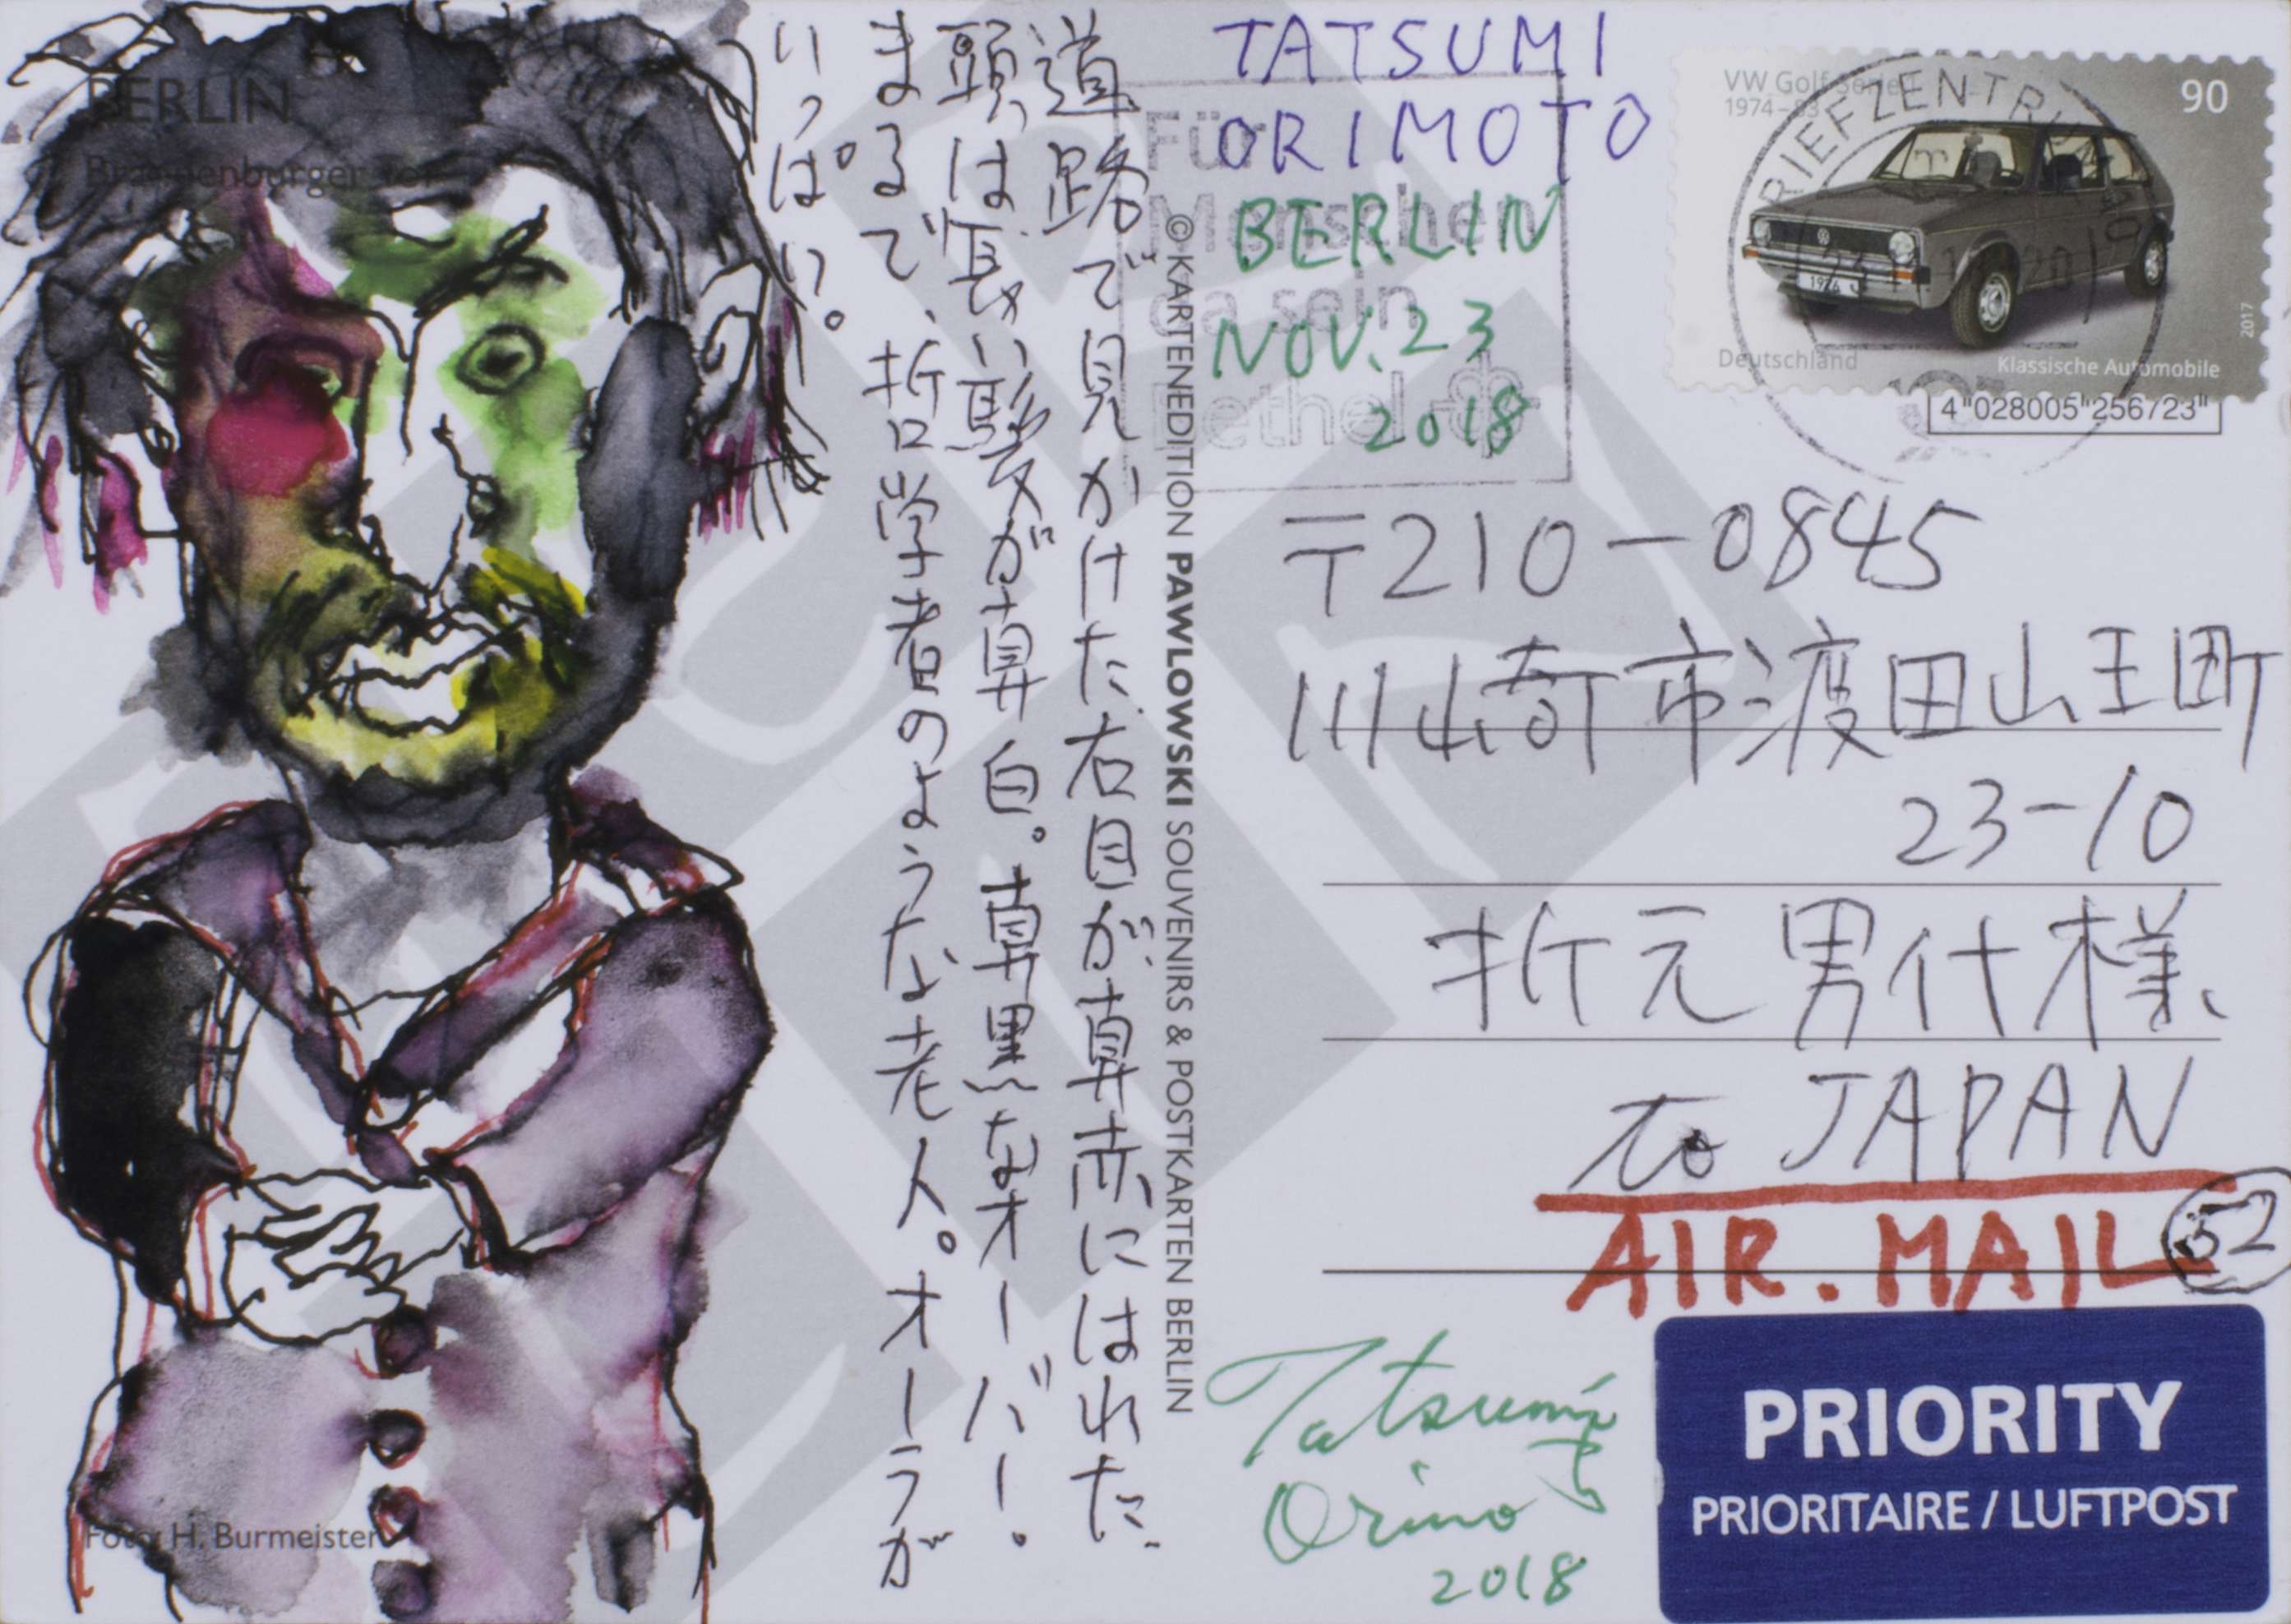 BERLIN
Brandenburger Tor
道路で見かけた右目が真赤にはれた
頭は長い髪が真白。真黒なオーバー。
まるで、哲学者のような老人。オーラが
いっぱい。
Foto: H. Burmeister
© KARTENEDITION PAWLOWSKI SOUVENIRS & POSTKARTEN BERLIN
TATSUMI
ORIMOTO
BERLIN
NOV. 23
2018
Für
Menschen
da sein
Bethel
VW Golf Serie 1
1974–83
90
BRIEFZENTRUM
1974
2017
Deutschland
Klassische Automobile
4"028005"256723"
〒210-0845
川崎市渡田山王町
23-10
折元男代様
to JAPAN
AIR. MAIL
52
Tatsumi
Orimo
2018
PRIORITY
PRIORITAIRE / LUFTPOST